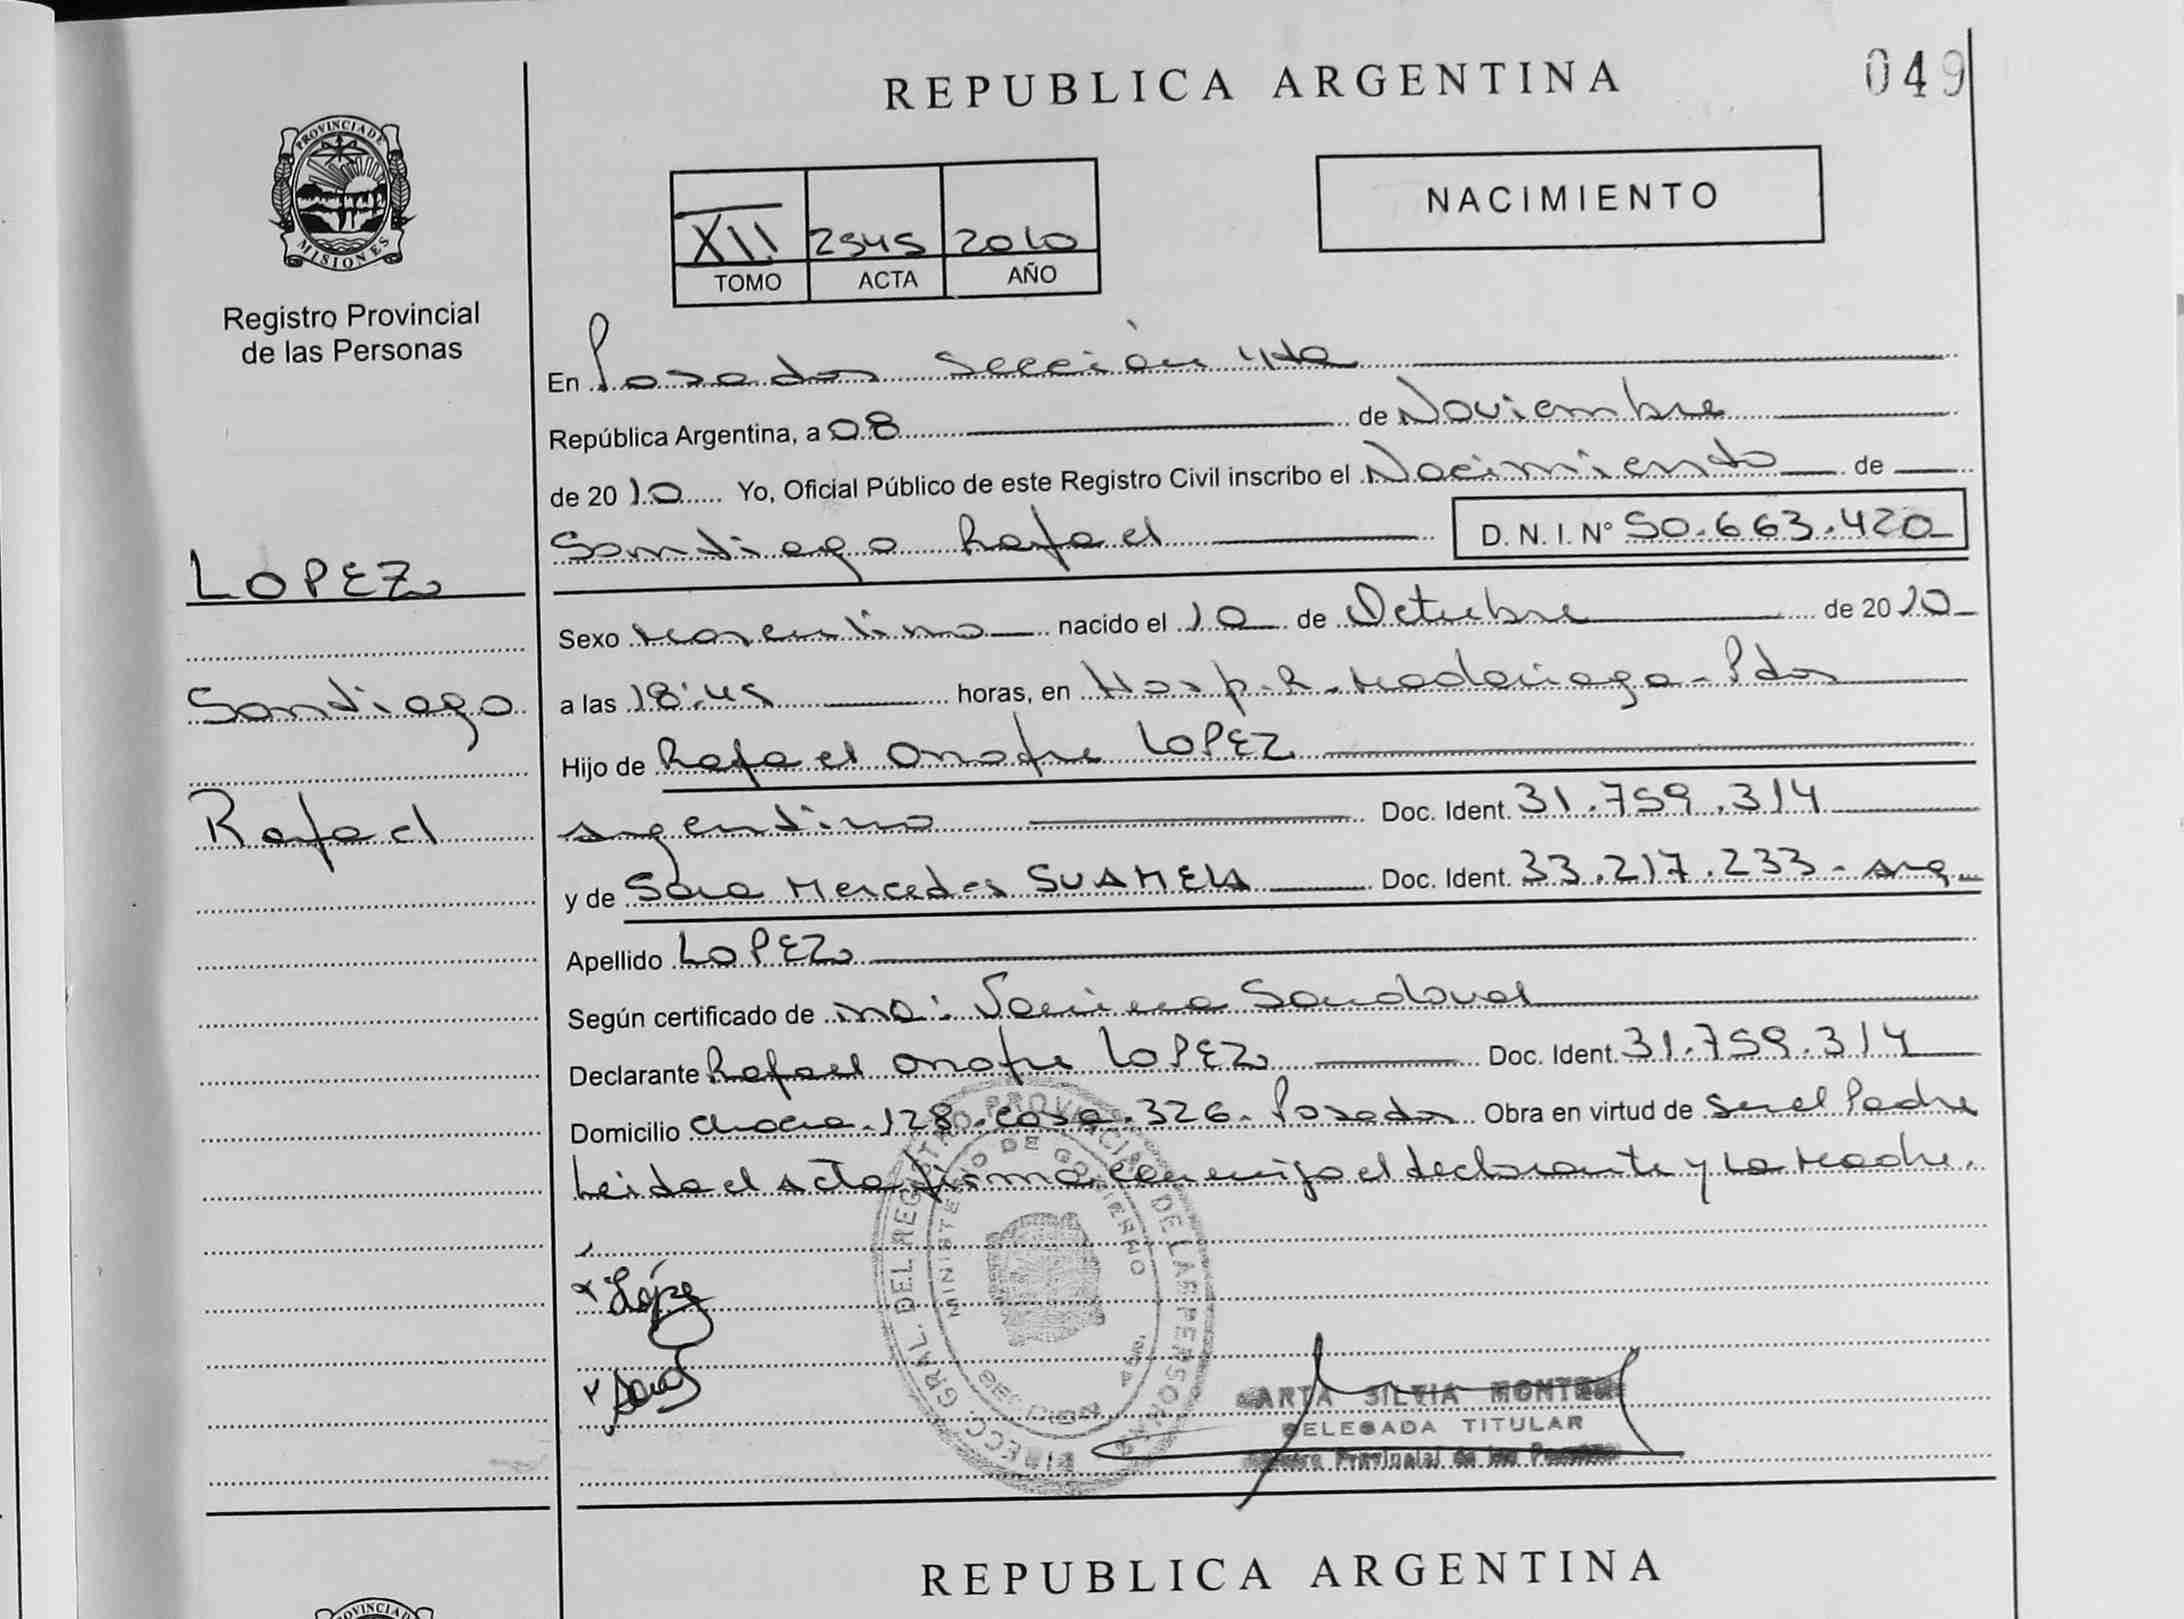 REPUBLICA ARGENTINA
049
PROVINCIA DE
MISIONES
Registro Provincial
de las Personas
NACIMIENTO
XII 2545 2010
TOMO ACTA AÑO
En Posadas Sección 4ta
República Argentina, a 08 de Noviembre
de 2010 Yo, Oficial Público de este Registro Civil inscribo el Nacimiento de
Santiago Rafael D. N. I. Nº 50.663.420
LOPEZ
Santiago
Rafael
Sexo Masculino nacido el 10 de Octubre de 2010
a las 18:45 horas, en Hosp. R. Madariaga - Pdas
Hijo de Rafael Onofre LOPEZ
argentino Doc. Ident. 31.759.314
y de Sara Mercedes Doc. Ident. 33.217.233 - arg
Apellido LOPEZ
Según certificado de Sandoval
Declarante Rafael Onofre LOPEZ Doc. Ident. 31.759.314
Domicilio Chacra 128. casa 326 - Posadas Obra en virtud de ser el Padre
Leida el Acta firma conmigo el declarante y la Madre.
López
Sara
DIRECC. GRAL. DEL REGISTRO PROVINCIAL DE LAS PERSONAS
MINISTERIO DE GOBIERNO
MARTA SILVIA
DELEGADA TITULAR
Registro Provincial de las Personas
REPUBLICA ARGENTINA
PROVINCIA